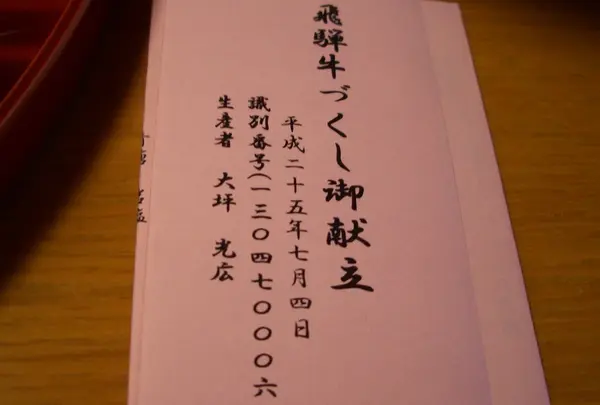 飛騨牛づくし御献立
平成二十五年七月四日
識別番号(一三〇四七〇〇〇六
生産者 大坪 光広